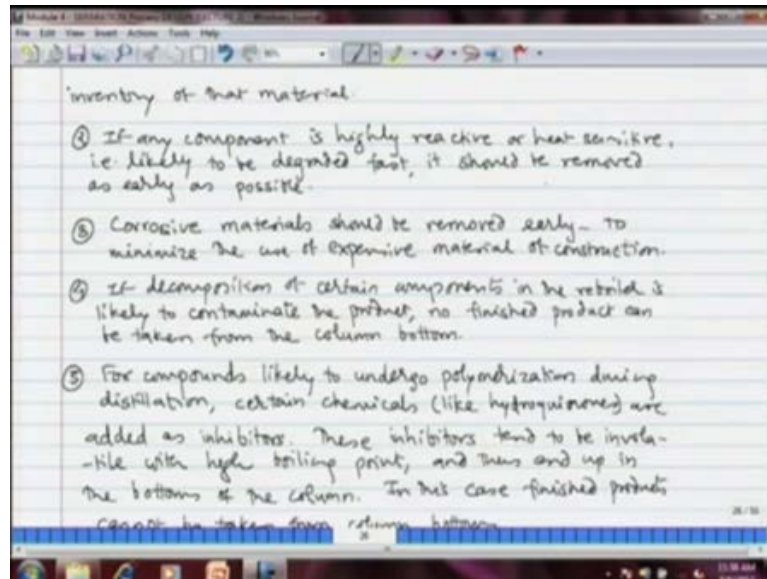 Module 4 - SEPARATION Process DESIGN (LECTURE 2) - Windows Journal
File Edit View Insert Actions Tools Help
inventory of that material.
② If any component is highly reactive or heat sensitive,
i.e. likely to be degraded fast, it should be removed
as early as possible.
③ Corrosive materials should be removed early - to
minimize the use of expensive material of construction.
④ If decomposition of certain components in the reboiler is
likely to contaminate the product, no finished product can
be taken from the column bottom.
⑤ For compounds likely to undergo polymerization during
distillation, certain chemicals (like hydroquinones) are
added as inhibitors. These inhibitors tend to be invola-
-tile with high boiling point, and thus end up in
the bottoms of the column. In this case finished products
cannot be taken from column bottom
26
11:38 AM